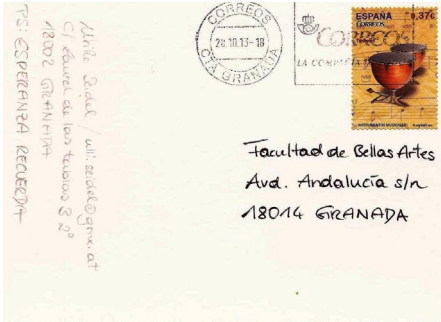 CORREOS
28.10.13-18
CTA GRANADA
CORREOS
ESPAÑA
CORREOS
0,37€
INSTRUMENTOS MUSICALES
Facultad de Bellas Artes
Avd. Andalucía s/n
18014 GRANADA
/ ulli.seidel@gmx.at
C/ Laurel de las tablas 3 2º
18002 GRANADA
PS: ESPERANZA RECUERDA